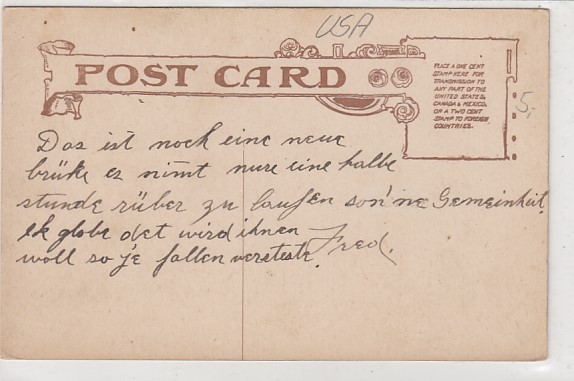 USA
POST CARD
PLACE A ONE CENT
STAMP HERE FOR
TRANSMISSION TO
ANY PART OF THE
UNITED STATES,
CANADA & MEXICO,
OR A TWO CENT
STAMP TO FOREIGN
COUNTRIES.
5,-
Das ist noch eine neue
brüke es nimt nure eine halbe
stunde rüber zu laufen son'ne Gemeinheit.
Ik globe det wird ihnen
woll so je fallen versteste.
Fred.